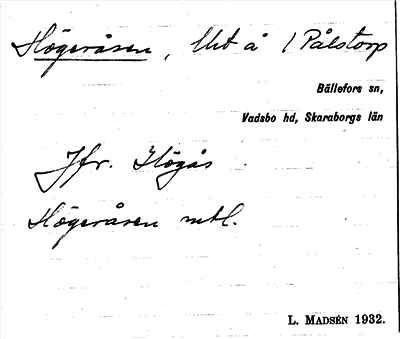 Högeråsen, Urt å 1 Pålstorp
Bällefors sn,
Vadsbo hd, Skaraborgs län
Jfr. Högås
Högeråsen mtl.
L. MADSÉN 1932.